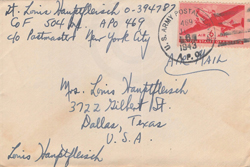 Lt. Louis Hauptfleisch O-394787
Co F 504 APO 469
c/o Postmaster New York City
U.S. ARMY POSTAL
1943
A.P.O.
Air Mail
Mrs. Louis Hauptfleisch
3722 Gilbert St.
Dallas, Texas
U.S.A.
Louis Hauptfleisch